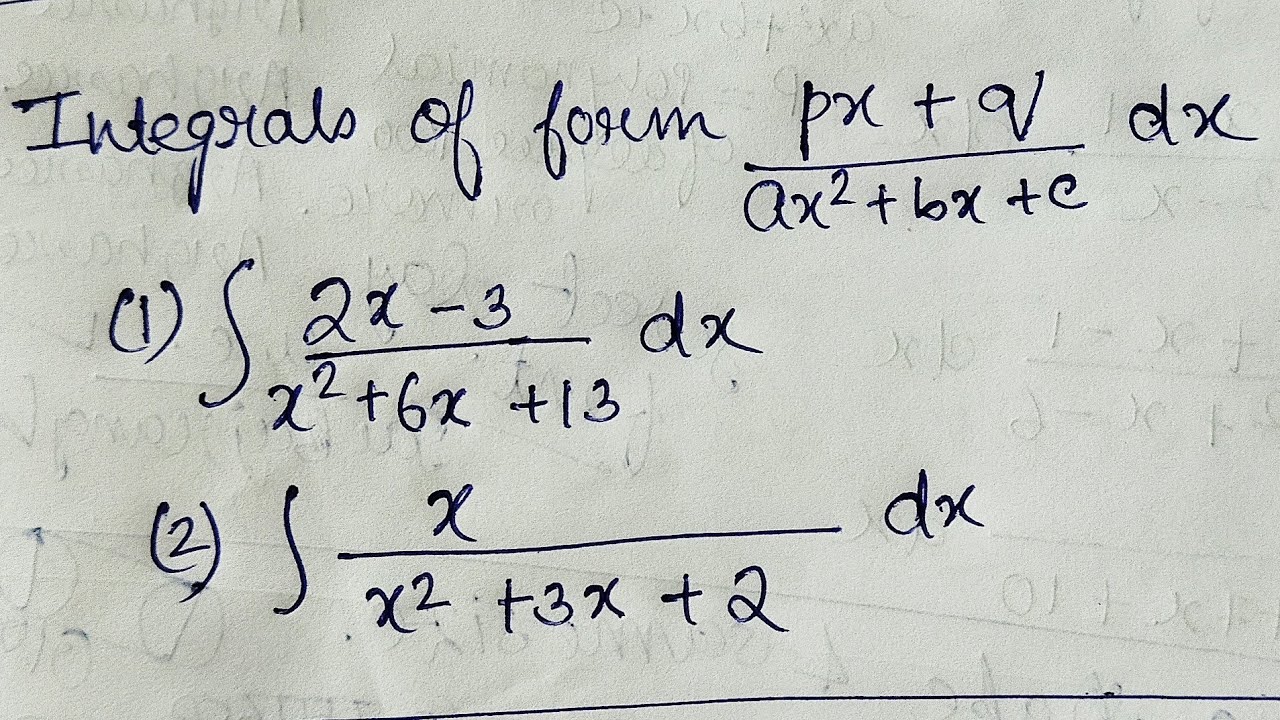 Integrals of form px + q / ax² + bx + c dx
(1) ∫ 2x - 3 / x² + 6x + 13 dx
(2) ∫ x / x² + 3x + 2 dx